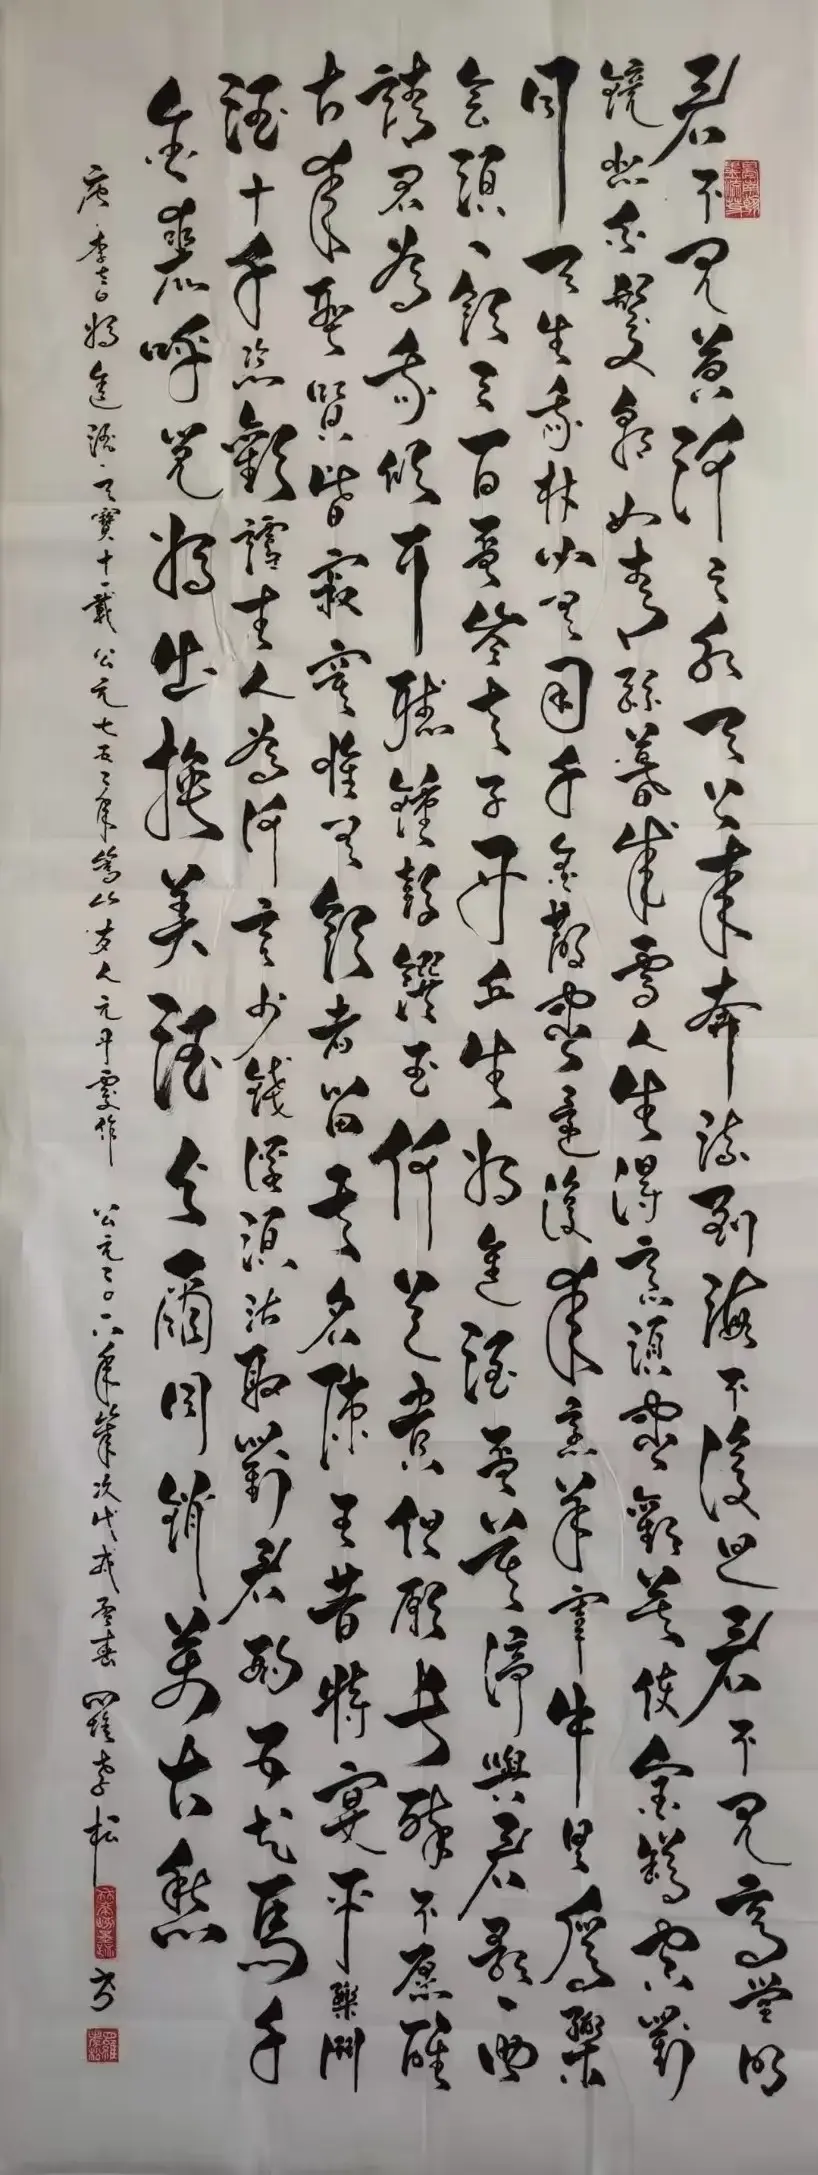 君不見黃河之水天上來奔流到海不復回君不見高堂明
鏡悲白髮朝如青絲暮成雪人生得意須盡歡莫使金樽空對
月天生我材必有用千金散盡還復來烹羊宰牛且為樂
會須一飲三百杯岑夫子丹丘生將進酒杯莫停與君歌一曲
請君為我傾耳聽鐘鼓饌玉何足貴但願長醉不愿醒
古來聖賢皆寂寞惟有飲者留其名陳王昔時宴平樂鬥
酒十千恣歡謔主人為何言少錢徑須沽取對君酌五花馬千
金裘呼兒將出換美酒與爾同銷萬古愁
唐李白將進酒天寶十一載公元七五二年友人元丹處作 公元二〇一八年歲次戊戌孟春羅孝松書